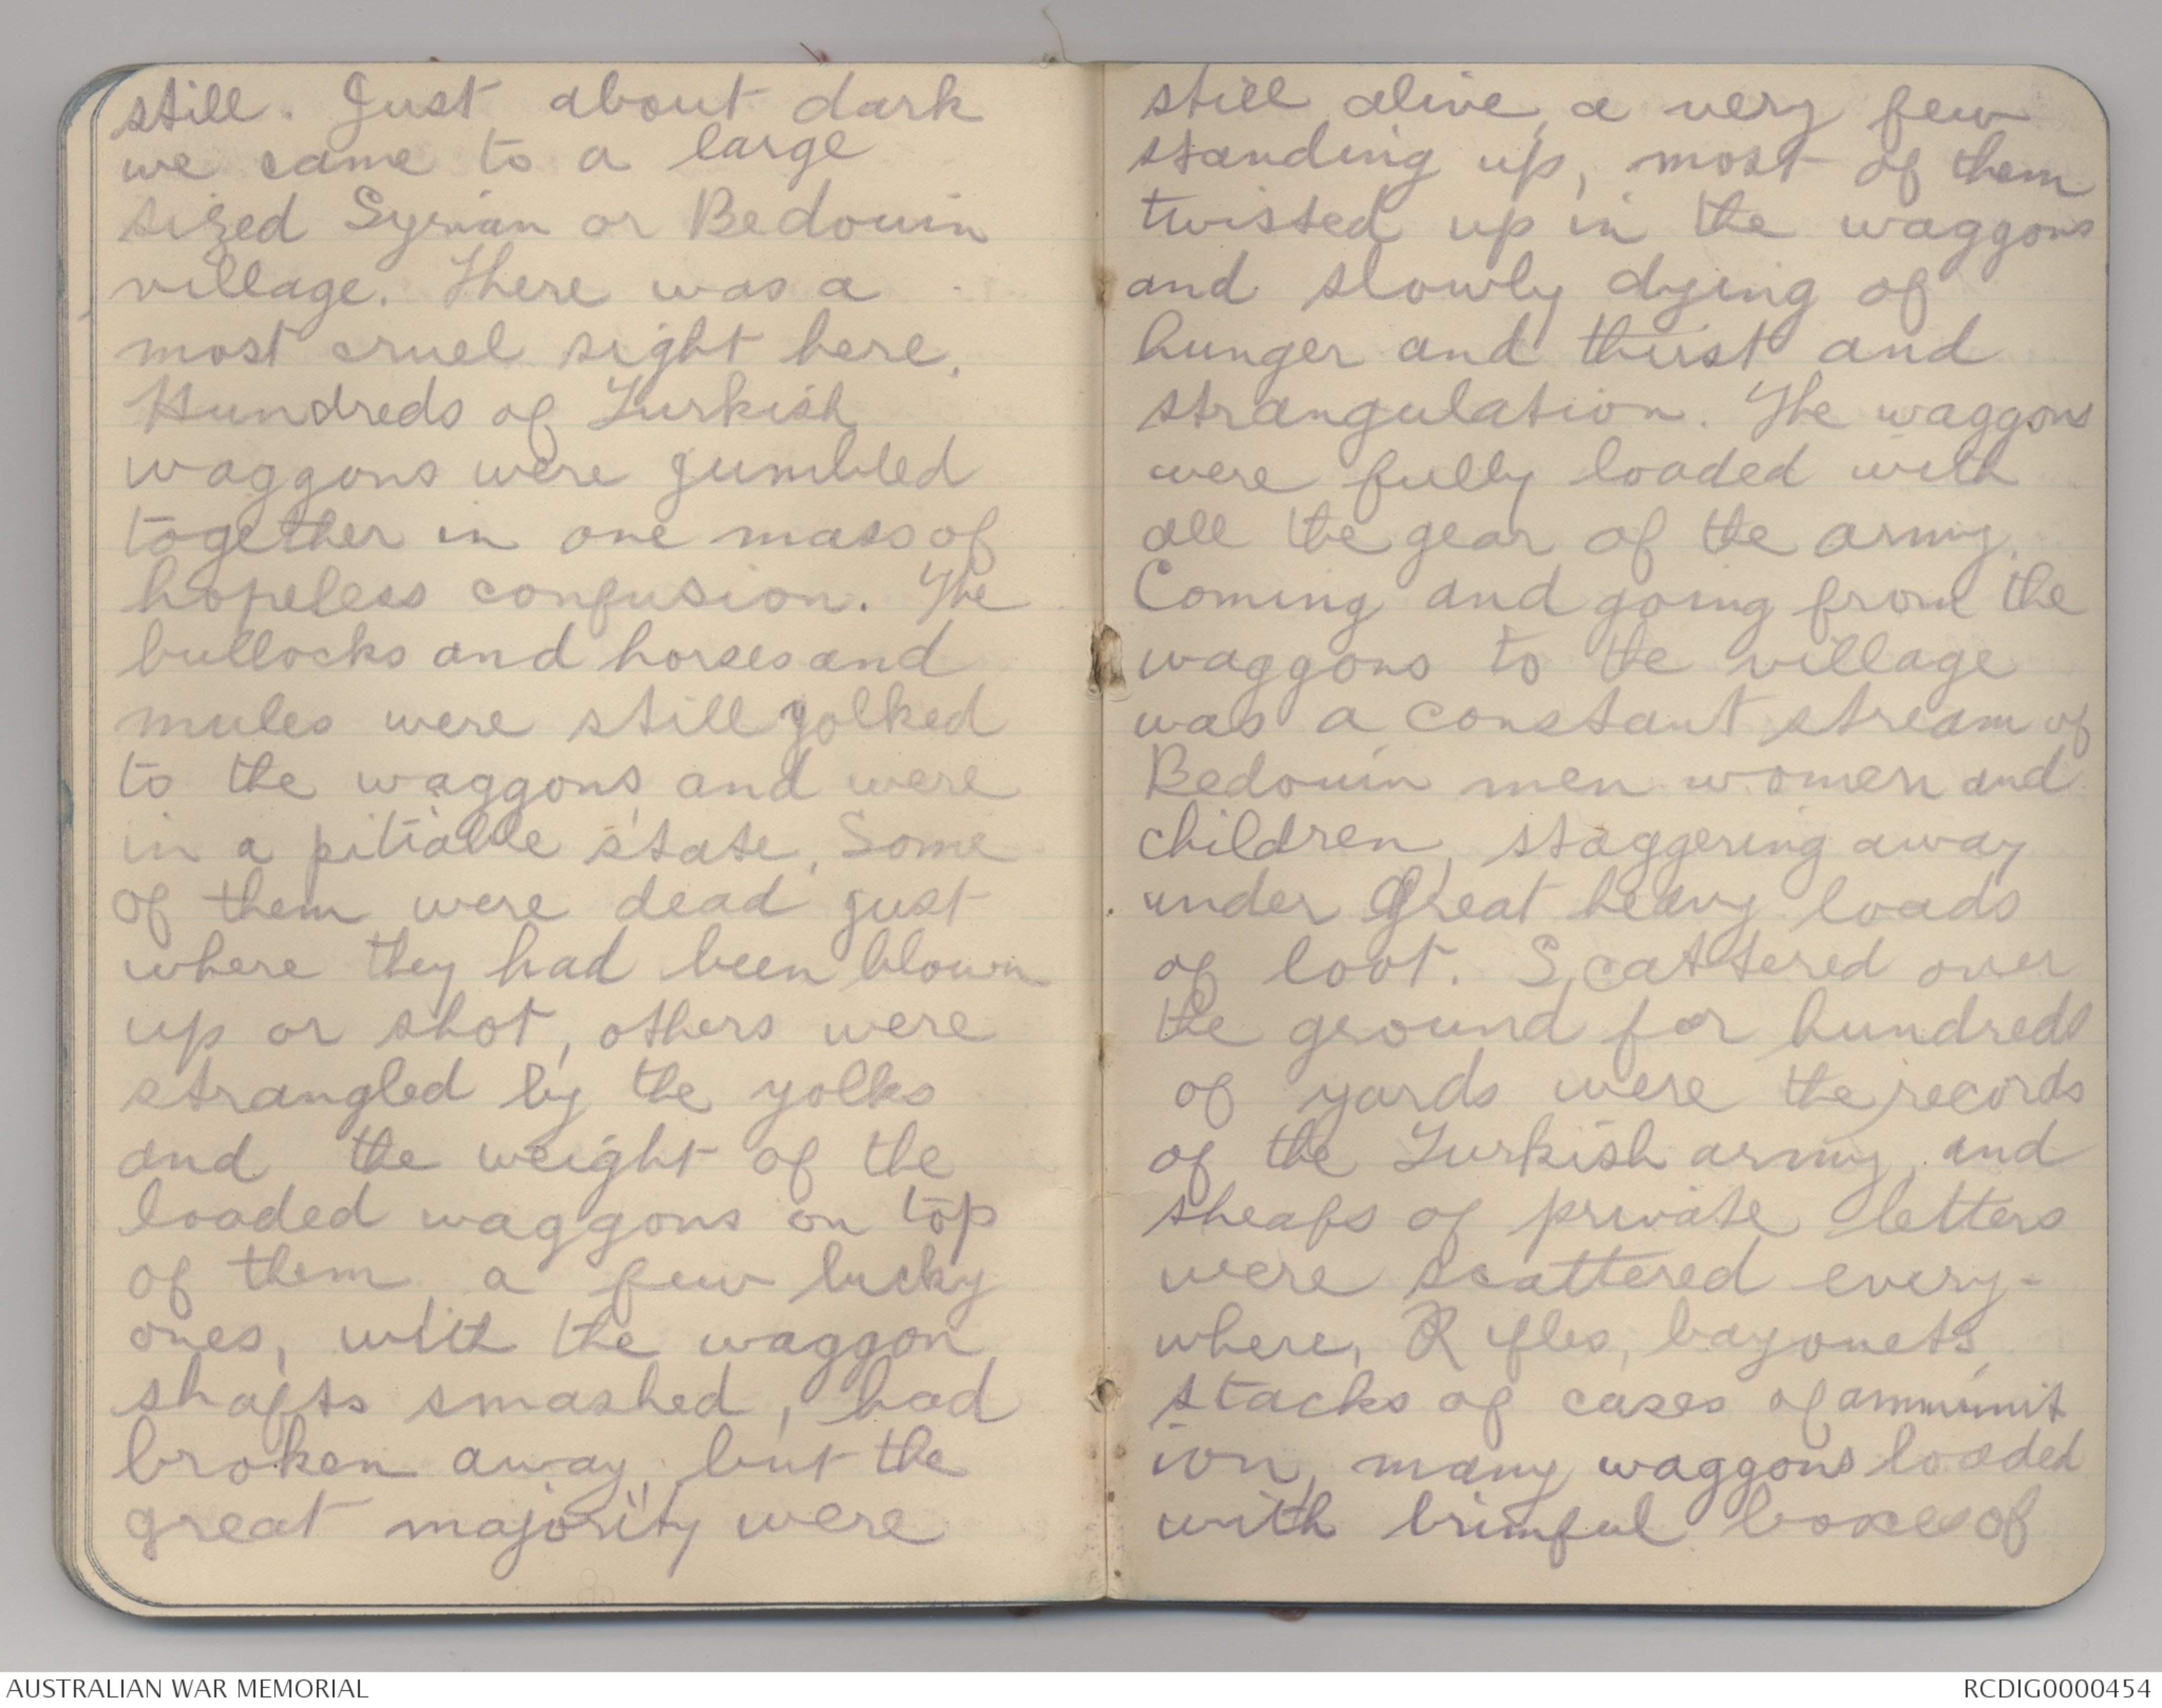 still. Just about dark
we came to a large
sized Syrian or Bedouin
village. There was a
most cruel sight here.
Hundreds of Turkish
waggons were jumbled
together in one mass of
hopeless confusion. The
bullocks and horses and
mules were still yolked
to the waggons and were
in a pitiable state. Some
of them were dead just
where they had been blown
up or shot, others were
strangled by the yolks
and the weight of the
loaded waggons on top
of them a few lucky
ones, with the waggon
shafts smashed, had
broken away, but the
great majority were
still alive, a very few
standing up, most of them
twisted up in the waggons
and slowly dying of
hunger and thirst and
strangulation. The waggons
were fully loaded with
all the gear of the army.
Coming and going from the
waggons to the village
was a constant stream of
Bedouin men women and
children, staggering away
under great heavy loads
of loot. Scattered over
the ground for hundreds
of yards were the records
of the Turkish army, and
sheafs of private letters
were scattered every-
where, Rifles, bayonets,
stacks of cases of ammunit
ion, many waggons loaded
with brimful boxes of
AUSTRALIAN WAR MEMORIAL
RCDIG0000454